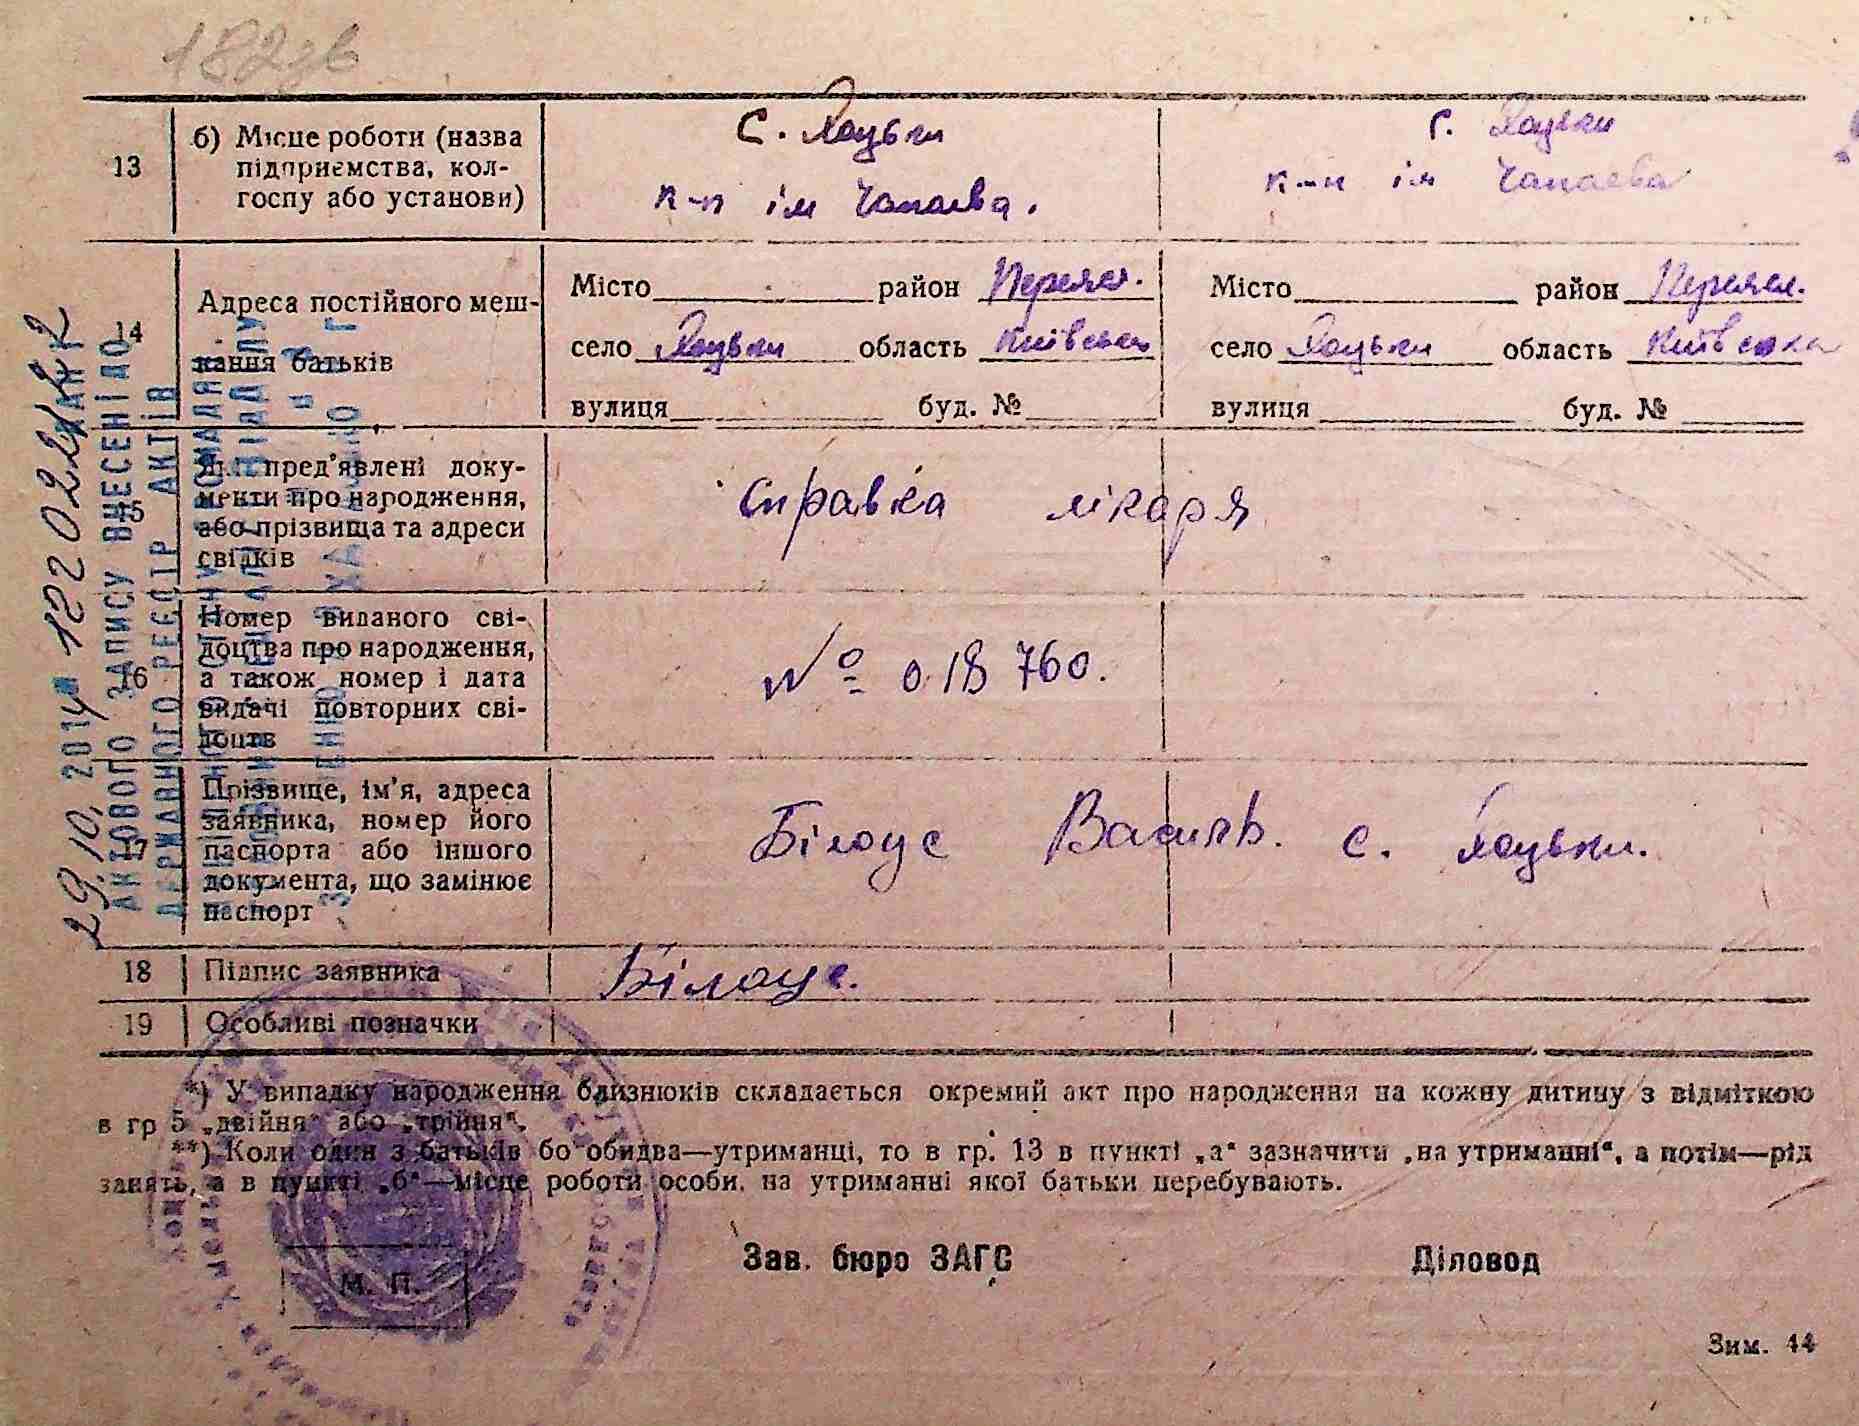 13
б) Місце роботи (назва
підприємства, кол-
госпу або установи)
с. Хоцьки
к-п ім Чапаева.
с. Хоцьки
к-п ім Чапаева
14
Адреса постійного меш-
кання батьків
Місто район Переясл.
село Хоцьки область Київська
вулиця буд. №
Місто район Переясл.
село Хоцьки область Київська
вулиця буд. №
15
Які пред'явлені доку-
менти про народження,
або прізвища та адреси
свідків
Справка лікаря
16
Номер виданого сві-
доцтва про народження,
а також номер і дата
видачі повторних сві-
доцтв
№ 018760.
17
Прізвище, ім'я, адреса
заявника, номер його
паспорта або іншого
документа, що замінює
паспорт
Білоус Василь. с. Хоцьки.
18 Підпис заявника Білоус.
19 Особливі позначки
*) У випадку народження близнюків складається окремий акт про народження на кожну дитину з відміткою
в гр 5 „двійня“ або „трійня“.
**) Коли один з батьків бо обидва—утриманці, то в гр. 13 в пункті „а“ зазначити „на утриманні“, а потім—рід
занять, а в пункті „б“—місце роботи особи, на утриманні якої батьки перебувають.
М. П.
Зав. бюро ЗАГС
Діловод
Зим. 44
29.10.2014
АКТОВОГО ЗАПИСУ ВНЕСЕНІ ДО
ДЕРЖАВНОГО РЕЄСТР АКТІВ